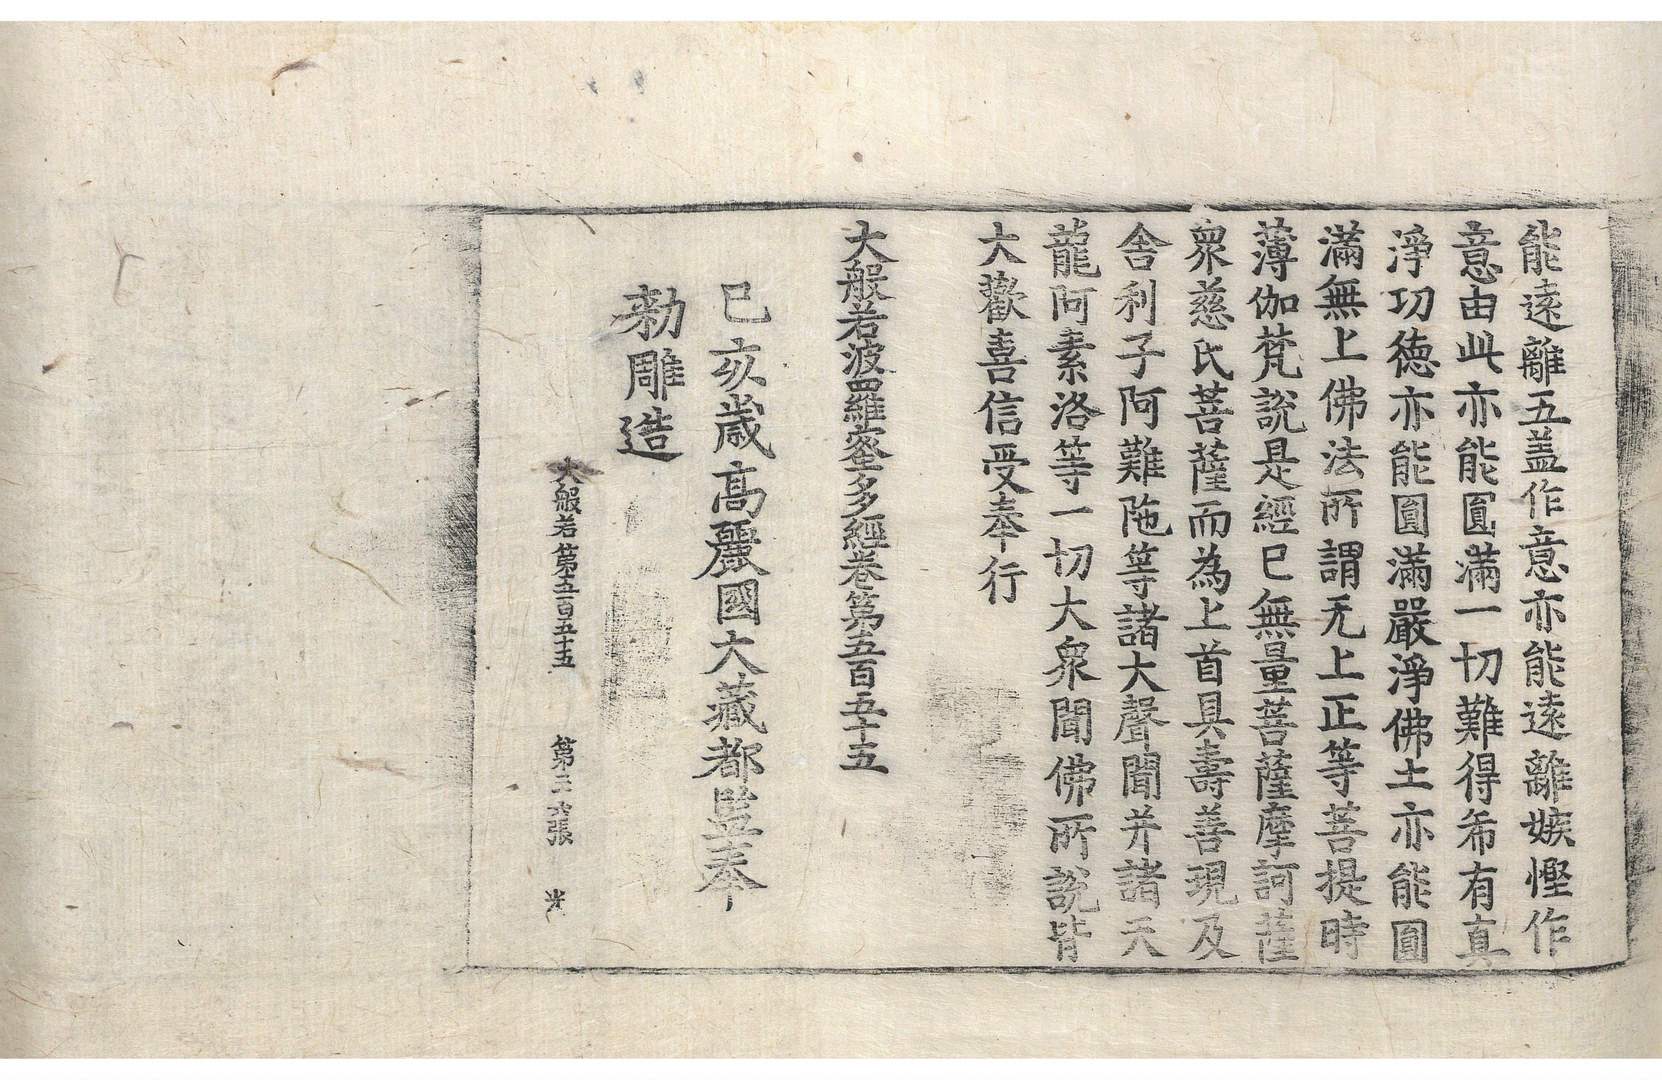 能遠離五盖作意亦能遠離嫉慳作
意由此亦能圓滿一切難得希有真
淨功德亦能圓滿嚴淨佛土亦能圓
滿無上佛法所謂无上正等菩提時
薄伽梵說是經已無量菩薩摩訶薩
衆慈氏菩薩而為上首具壽善現及
舍利子阿難陁等諸大聲聞并諸天
龍阿素洛等一切大衆聞佛所說皆
大歡喜信受奉行
大般若波羅蜜多經卷第五百五十五
己亥歲高麗國大藏都監奉
勑雕造
大般若第五百五十五 第二六張 光